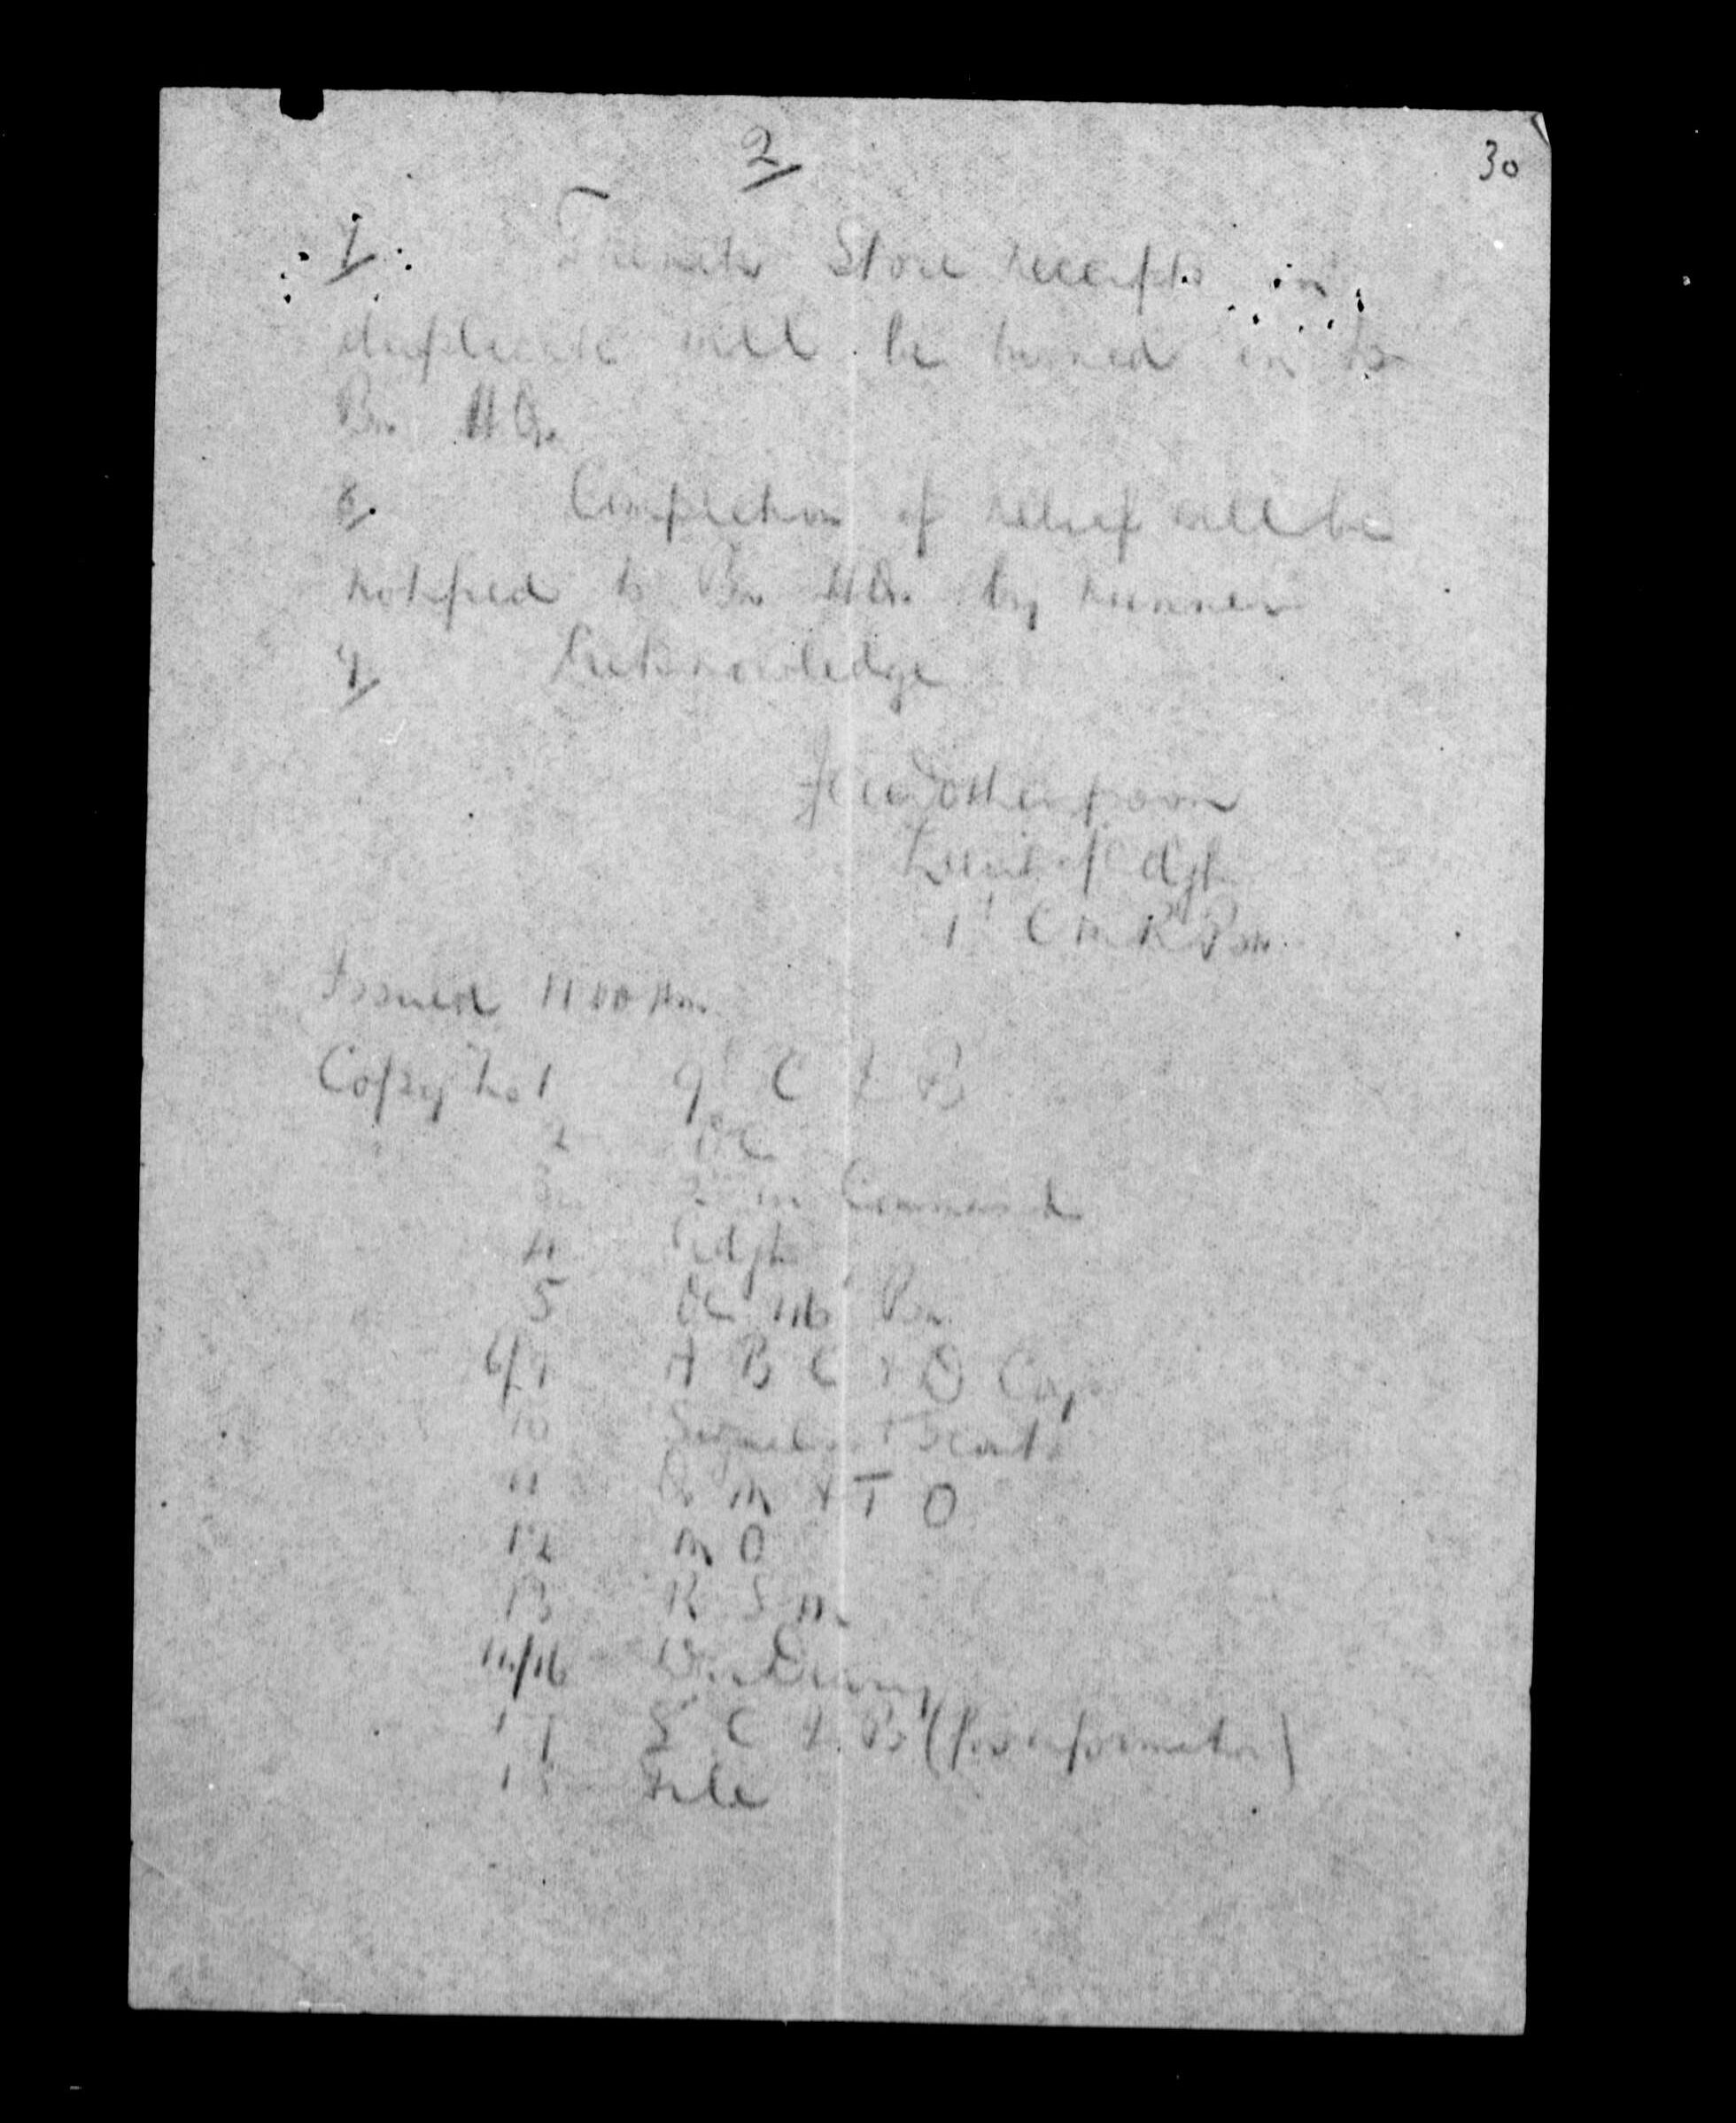 2
30
7. Trench Store receipts in
duplicate will be turned in to
Bn. HQ.
8. Completion of relief will be
notified to Bn HQ. by runner
9. Acknowledge
Lieut & Adjt
1st C M R Bn.
Issued 11 00 Am.
Copy No 1 9 C I B
2 OC
3 2 in Command
4 Adjt
5 OC 116 Bn
6/9 A B C & D Coys
10 Signals & Scouts
11 Q M & T O
12 M O
13 R S M
14/16 War Diary
17 8 C I B (for information)
18 File